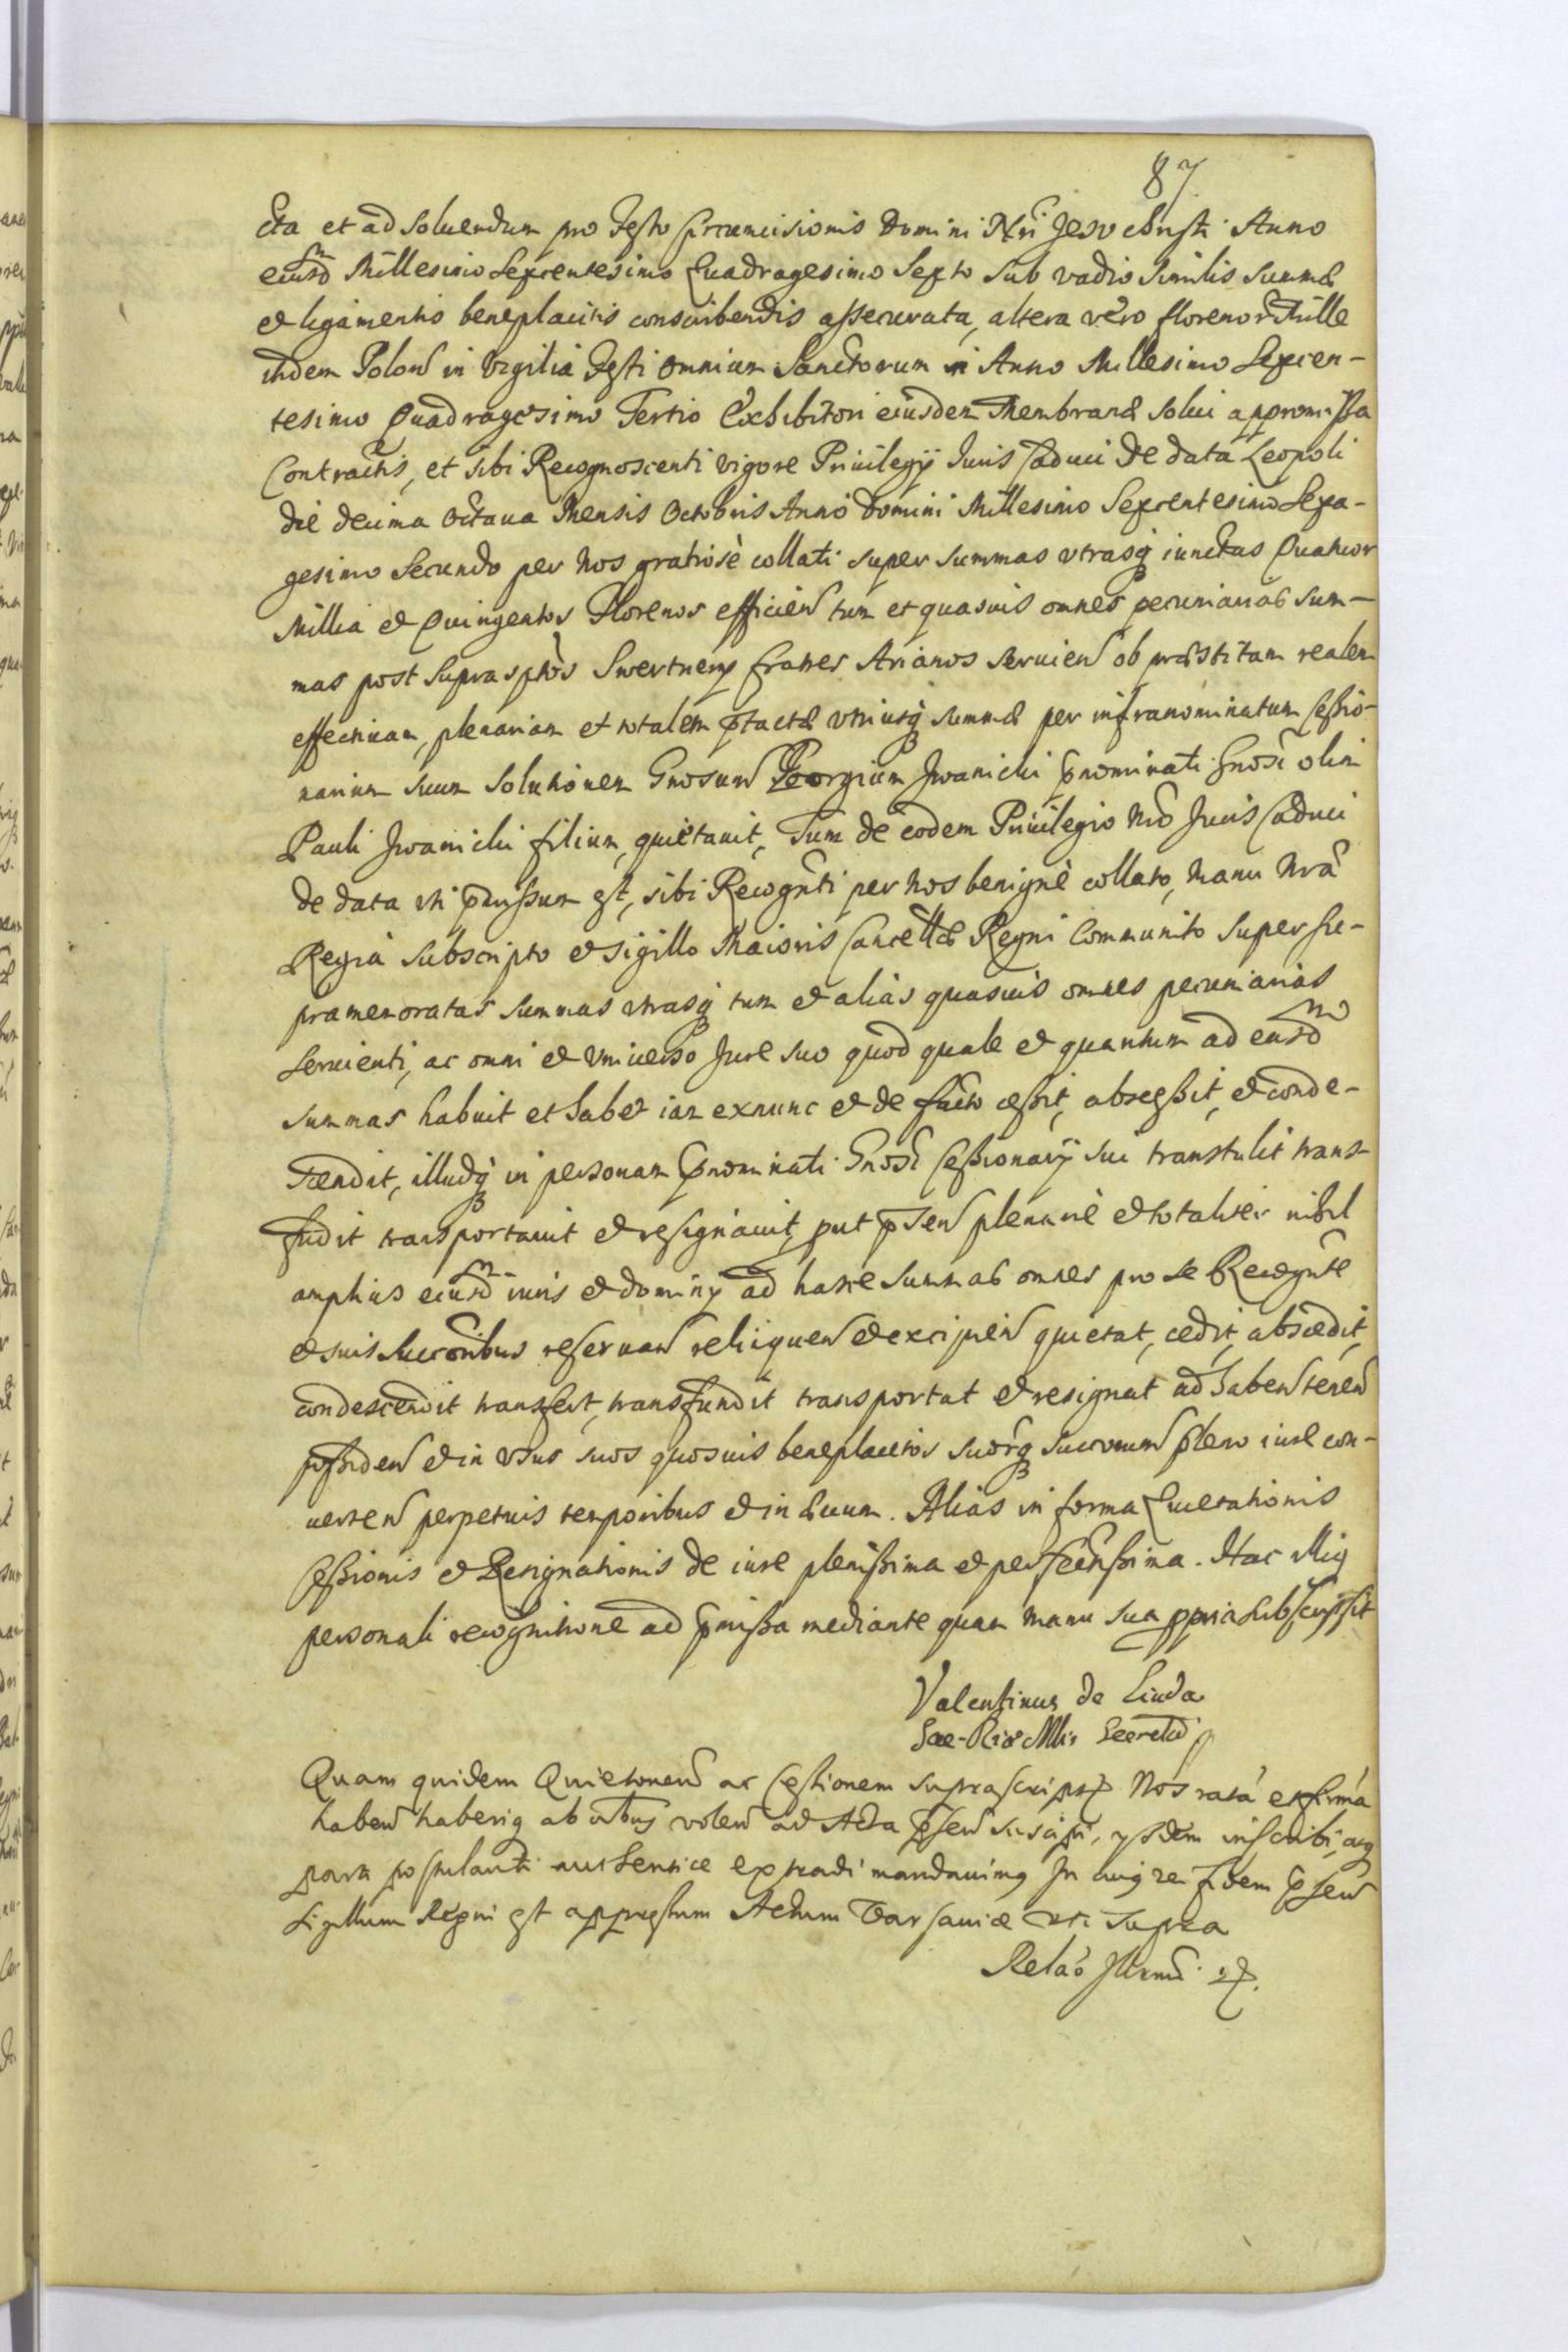 87
cta et ad soluendum pro Festo Circumcisionis Domini Nri Jesu Christi Anno
eiusdm Millesimo Sexcentesimo Quadragesimo Sexto sub vadio similis summæ
et ligamentis beneplacitis conscribendis assecurata, altera vero florenor Mille
itidem Polon in Vigilia Festi Omnium Sanctorum in Anno Millesimo Sexcen-
tesimo Quadragesimo Tertio Exhibitori eiusdem Membranæ solui appromissa
Contractis, et sibi Recognoscenti vigore Priuilegij Iuris Caduci de data Leopoli
die decima octaua Mensis Octobris Anno Domini Millesimo Sexcentesimo Sexa-
gesimo Secundo per Nos gratiosè collati super summas vtrasq iunctas Quatuor
Millia et Quingentos Florenos efficien tum et quasuis omnes pecuniarias sum-
mas post suprasptos Swertnery fratres Arianos seruien ob præstitam realem
effectiuam, plenariam et totalem ptactæ vtriusq summæ per infranominatum Cessio-
narium suum solutionem Gnosum Georgium Iwanicki pnominati Gnosi olim
Pauli Iwanicki filium, quietauit, Tum de eodem Priuilegio Nro Iuris Caduci
de data vti pmissum est, sibi Recognti per Nos benignè collato, Manu Nrâ
Regia subscripto et sigillo Maioris Cancellæ Regni communito super su-
pramemoratas summas vtrasq tum et alias quasuis omnes pecuniarias
seruienti, ac omni et vniuerso Iure suo quod quale et quantum ad easdm
summas habuit et habet iam exnunc et de facto cessit, abscessit, et conde-
scendit, illudq in personam pnominati Gnosi Cessionarij sui transtulit trans-
fudit transportauit et resignauit, put psen plenariè et totaliter nihil
amplius eiusdm iuris et dominij ad hasce summas omnes pro se Recognte
et suis succoribus reseruan relinquen et excipien quietat, cedit, abscedit,
condescendit transfert, transfundit transportat et resignat ad haben tenen
possiden et in vsus suos quosuis beneplacitos suorq succorum pleno iure con-
uerten perpetuis temporibus et in æuum. Alias in forma Quietationis
Cessionis et Resignationis de iure plenissima et perfectissima. Hac illiq
personali recognitione ad pmissa mediante quam manu sua ppria subscripsit
Valentinus de Linda
Sae-Riæ Mttis Secretari
Quam quidem Quietonem ac Cessionem suprascriptā Nos ratā et firmā
haben haberiq ab oibus volen ad Acta psen suscipi, ysdem inscribi, acq
parti postulanti authentice extradi mandauimq In cuiq rei fidem psen
Sigillum Regni est appressum Actum Varsauiæ uti supra
Relao Illrmi